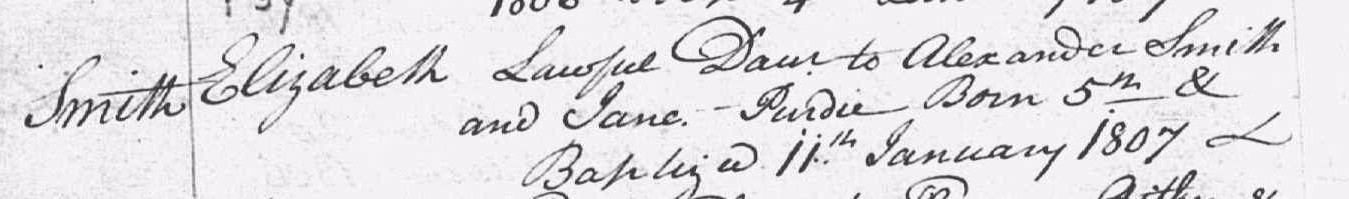 Smith Elizabeth Lawful Daur. to Alexander Smith
and Jane. Purdie Born 5th &
Baptized 11th January 1807